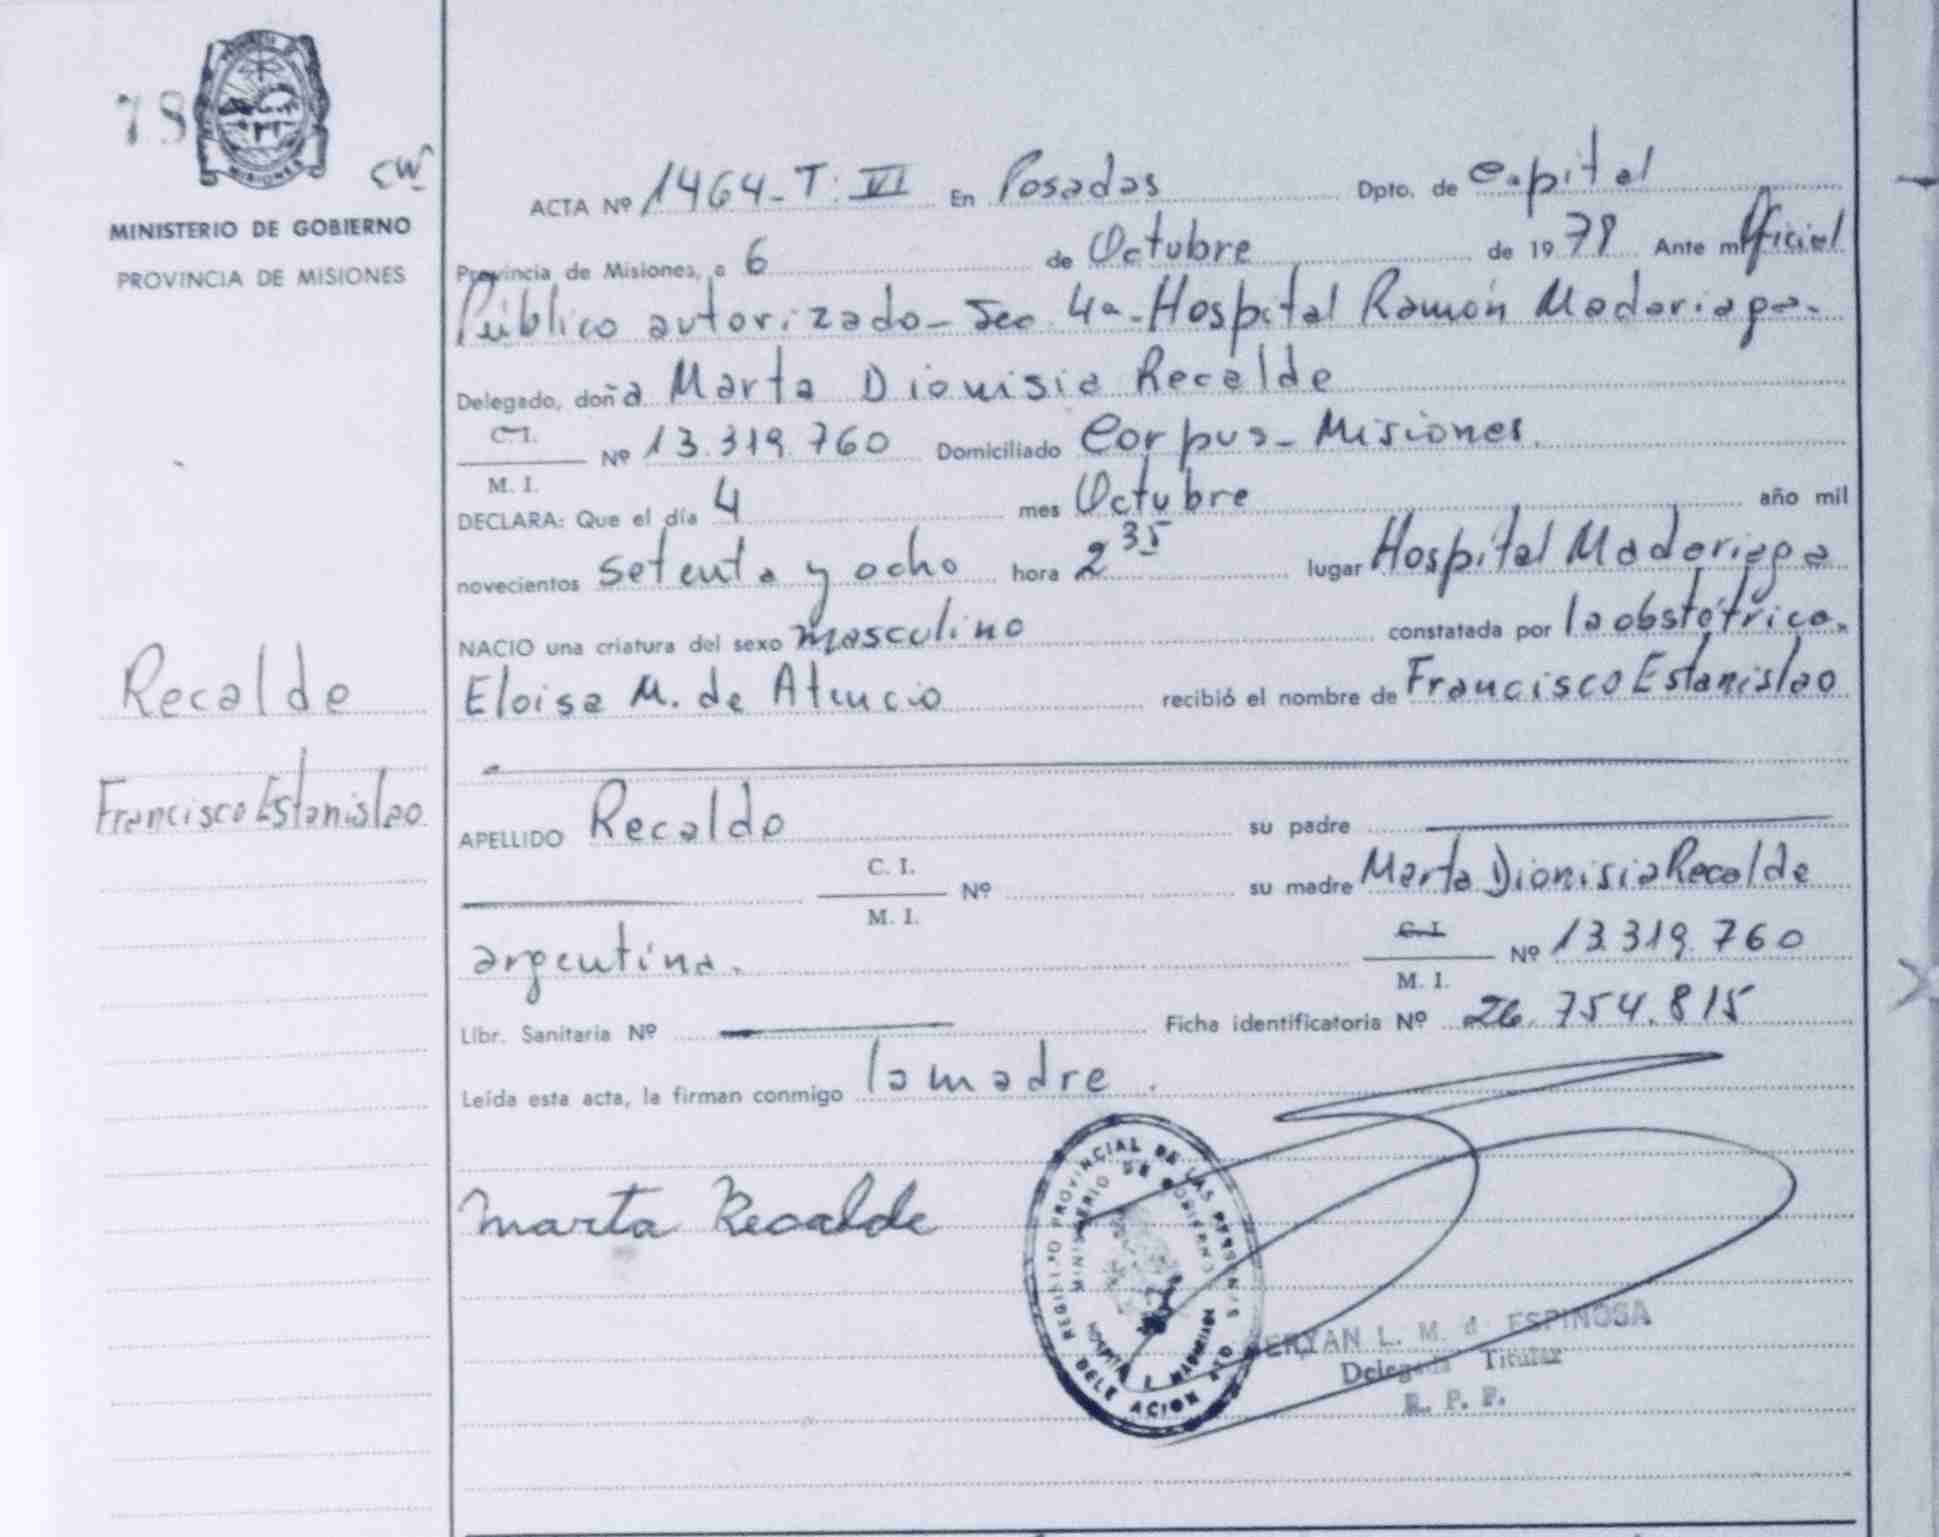 78
MISIONES
CW
MINISTERIO DE GOBIERNO
PROVINCIA DE MISIONES
Recalde
Francisco Estanislao
ACTA Nº 1464-T: VI En Posadas Dpto. de Capital
Provincia de Misiones, a 6 de Octubre de 1978 Ante mi Oficial
Público autorizado- Sec 4a- Hospital Ramón Madariaga-
Delegado, doña Marta Dionisia Recalde
C. I.
M. I. Nº 13.319.760 Domiciliado Corpus- Misiones.
DECLARA: Que el día 4 mes Octubre año mil
novecientos setenta y ocho hora 2 35 lugar Hospital Madariaga
NACIO una criatura del sexo masculino constatada por la obstétrica.
Eloisa M. de Atencio recibió el nombre de Francisco Estanislao
APELLIDO Recalde su padre
C. I.
M. I. Nº su madre Marta Dionisia Recalde
argentina. C. I.
M. I. Nº 13.319.760
Libr. Sanitaria Nº Ficha identificatoria Nº 26.754.815
Leída esta acta, la firman conmigo la madre.
Marta Recalde
REGISTRO PROVINCIAL DE LAS PERSONAS
MINISTERIO DE GOBIERNO
HOSPITAL R MADARIAGA
DELEGACION
L. M. d ESPINOSA
Delegada Titular
R. P. P.